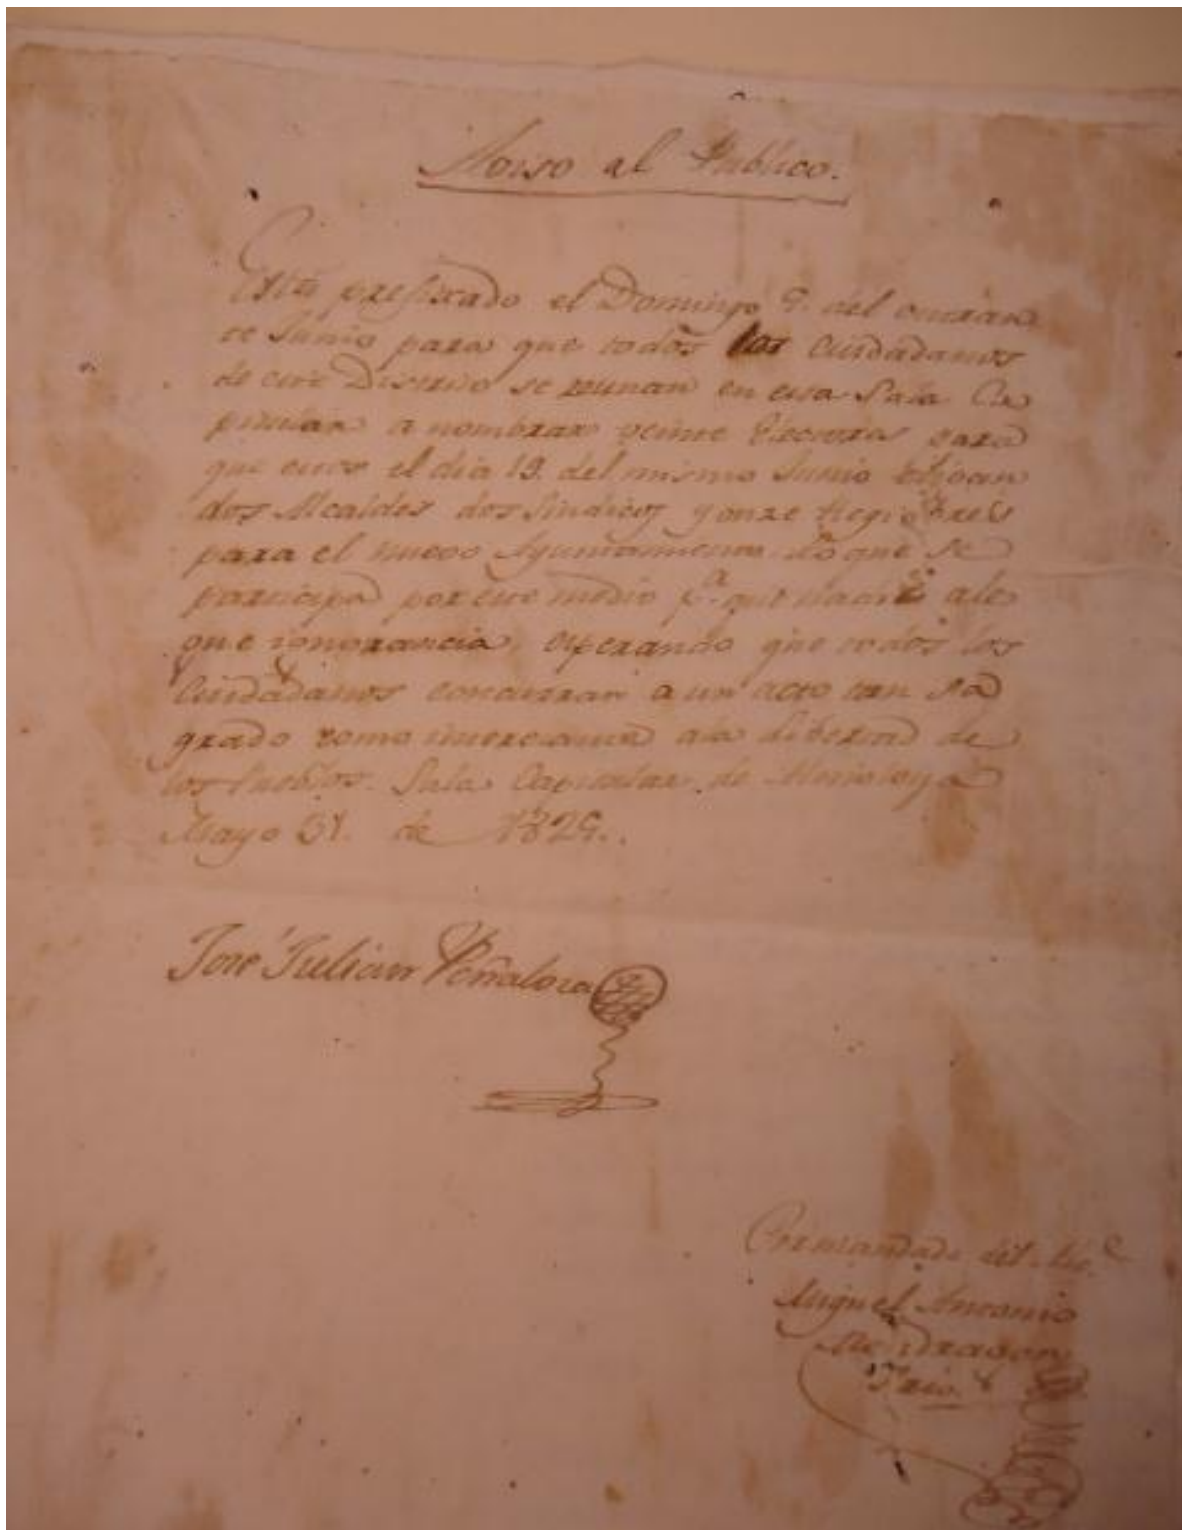 Aviso al Publico.
Esta prefixado el Domingo 9. del entran
te Junio para que todos los Ciudadanos
de este Distrito se reunan en esta Sala Ca
pitular a nombrar veinte Electores para
que estos el dia 19. del mismo Junio elijan
dos Alcaldes dos Sindicos y onze Regidores
para el nuevo Ayuntamiento. Lo que se
participa por este medio pa. que nadie ale
gue ignorancia, esperando que todos los
Ciudadanos concurran a un acto tan sa
grado como interesante a la libertad de
los Pueblos. Sala Capitular de
Mayo 31. de 182
José Julian Peñalosa
Por mandado del
Miguel Antonio
Mondragon
Srio.